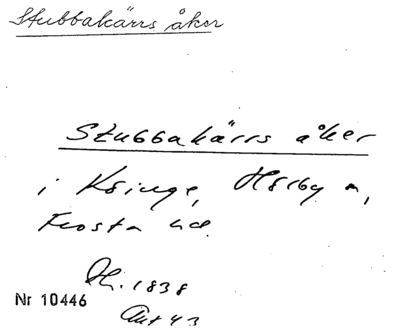 Stubbakärrs åker
Stubbakärrs åker
i Ksinge, Hörby sn,
Frosta hd.
Lh. 1838
Nr 10446
Akt 43